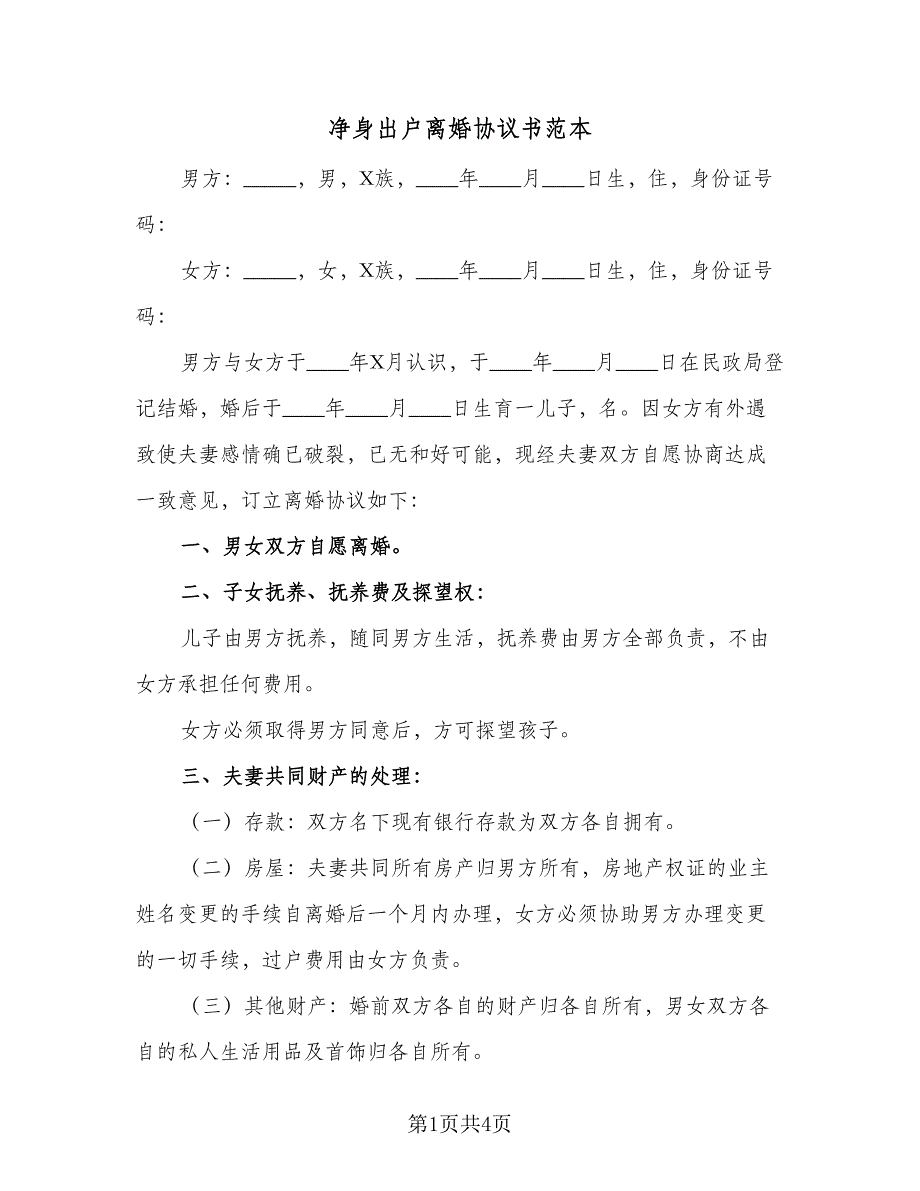 净身出户离婚协议书范本
男方：_____，男，X族，____年____月____日生，住，身份证号
码：
女方：_____，女，X族，____年____月____日生，住，身份证号
码：
男方与女方于____年X月认识，于____年____月____日在民政局登
记结婚，婚后于____年____月____日生育一儿子，名。因女方有外遇
致使夫妻感情确已破裂，已无和好可能，现经夫妻双方自愿协商达成
一致意见，订立离婚协议如下：
一、男女双方自愿离婚。
二、子女抚养、抚养费及探望权：
儿子由男方抚养，随同男方生活，抚养费由男方全部负责，不由
女方承担任何费用。
女方必须取得男方同意后，方可探望孩子。
三、夫妻共同财产的处理：
（一）存款：双方名下现有银行存款为双方各自拥有。
（二）房屋：夫妻共同所有房产归男方所有，房地产权证的业主
姓名变更的手续自离婚后一个月内办理，女方必须协助男方办理变更
的一切手续，过户费用由女方负责。
（三）其他财产：婚前双方各自的财产归各自所有，男女双方各
自的私人生活用品及首饰归各自所有。
第1页共4页